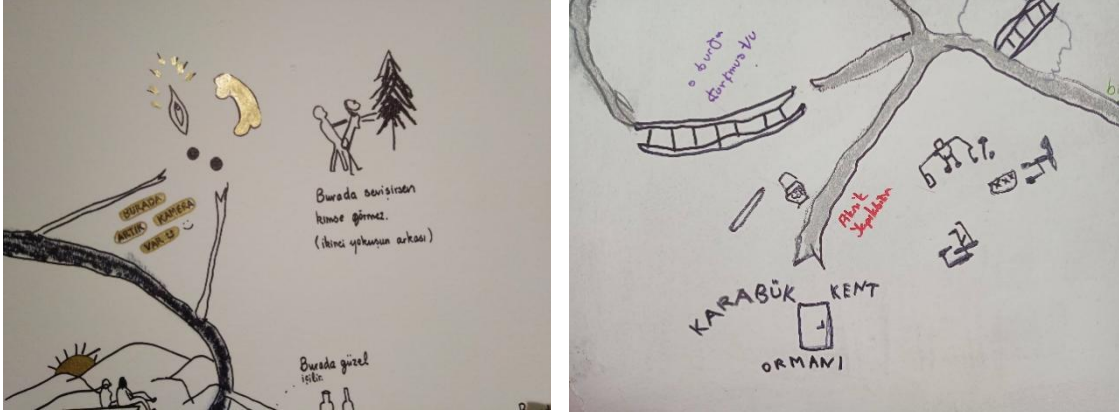 BURADA
ARTIK KAMERA
VAR
Burada sevişirsen
kimse görmez.
(ikinci yokuşun arkası)
Burada güzel
içilir
o burda
durkmustu
Piknik
KARABÜK KENT
ORMANI